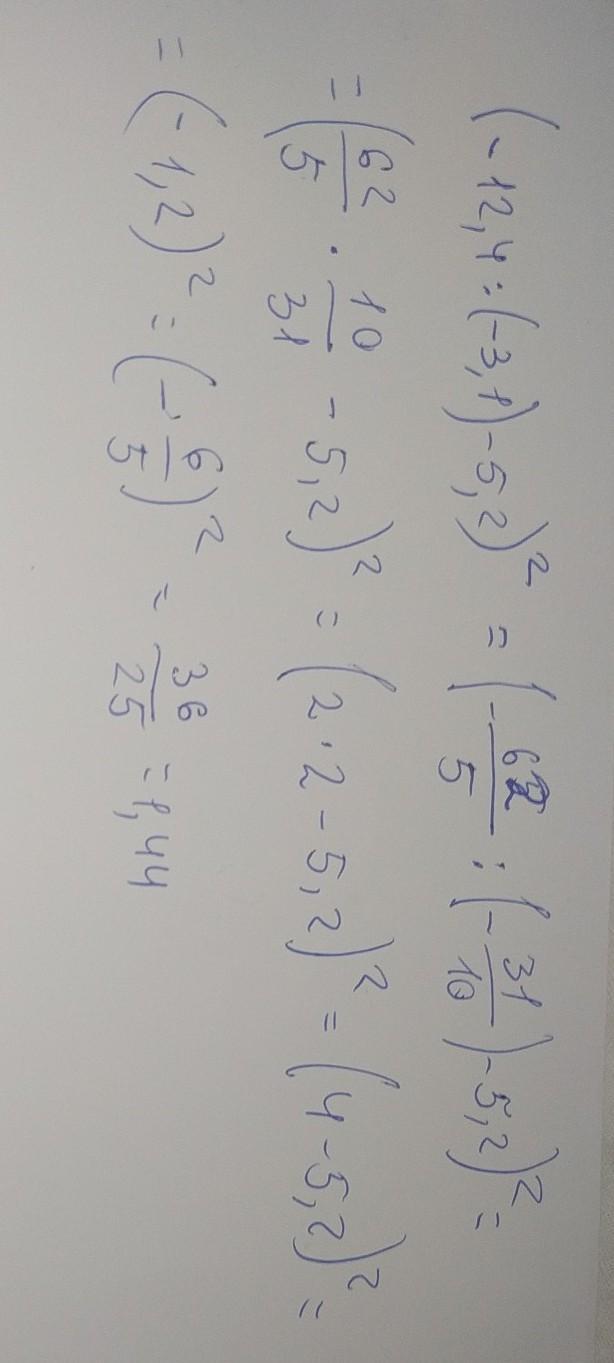 (-12,4:(-3,1)-5,2)² = (-62/5 : (-31/10)-5,2)² =
= (62/5 · 10/31 - 5,2)² = (2·2-5,2)² = (4-5,2)² =
= (-1,2)² = (-6/5)² = 36/25 = 1,44